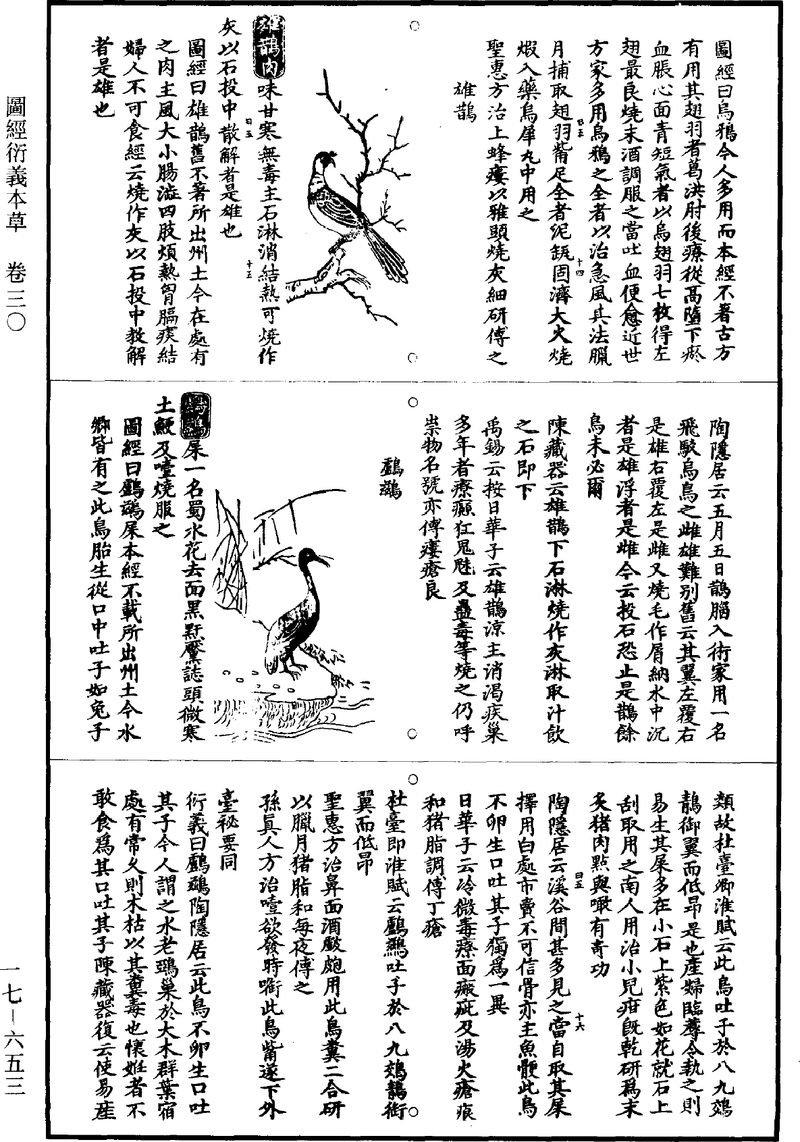 圖經衍義本草　卷三〇
一七—六五三
圖經曰烏鴉今人多用而本經不著古方
有用其翅羽者葛洪肘後療從高墮下瘀
血脹心面青短氣者以烏翅羽七枚得左
翅最良燒末酒調服之當吐血便愈近世
方家多用烏鴉之全者以治急風其法臘
月捕取翅羽觜足全者泥缶固濟大火燒
煅入藥烏犀丸中用之
聖惠方治上蜂瘻以雅頭燒灰細研傅之
雄鵲
雄鵲肉味甘寒無毒主石淋消結熱可燒作
灰以石投中散解者是雄也
圖經曰雄鵲舊不著所出州土今在處有
之肉主風大小腸澁四肢煩熱胷膈痰結
婦人不可食經云燒作灰以石投中散解
者是雄也
陶隱居云五月五日鵲腦入術家用一名
飛駮烏鳥之雌雄難別舊云其翼左覆右
是雄右覆左是雌又燒毛作屑納水中沉
者是雄浮者是雌今云投石恐止是鵲餘
鳥未必爾
陳藏器云雄鵲下石淋燒作灰淋取汁飲
之石即下
禹錫云按日華子云雄鵲涼主消渴疾巢
多年者療癲狂鬼魅及蠱毒等燒之仍呼
祟物名號亦傅瘻瘡良
鸕鷀
鸕鷀屎一名蜀水花去面黑䵟黶誌頭微寒
土鯁及噎燒服之
圖經曰鸕鷀屎本經不載所出州土今水
鄉皆有之此鳥胎生從口中吐子如兔子
類故杜臺卿淮賦云此鳥吐子於八九鵁
鶄御翼而低昂是也產婦臨蓐令執之則
易生其屎多在小石上紫色如花就石上
刮取用之南人用治小兒疳既乾研爲末
炙猪肉點與噉有奇功
陶隱居云溪谷間甚多見之當自取其屎
擇用白處市賣不可信骨亦主魚骾此鳥
不卵生口吐其子獨爲一異
日華子云冷微毒療面瘢疵及湯火瘡痕
和猪脂調傅丁瘡
杜臺即淮賦云鸕鷀吐子於八九鵁鶄銜
翼而低昂
聖惠方治鼻面酒皶皰用此鳥糞二合研
以臘月猪脂和每夜傅之
孫眞人方治噎欲發時銜此鳥觜遂下外
臺祕要同
衍義曰鸕鷀陶隱居云此鳥不卵生口吐
其子今人謂之水老鵶巢於大木群葉宿
處有常久則木枯以其糞毒也懷姙者不
敢食爲其口吐其子陳藏器復云使易產